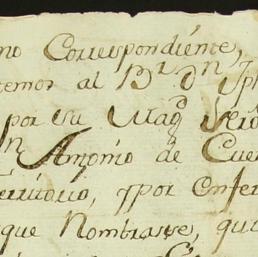 no Correspondiente,
temos al B.r D.n Jph
por su Mag.d
n Antonio de Cue
territorio, y por Enfer
que Nombrasse, qu